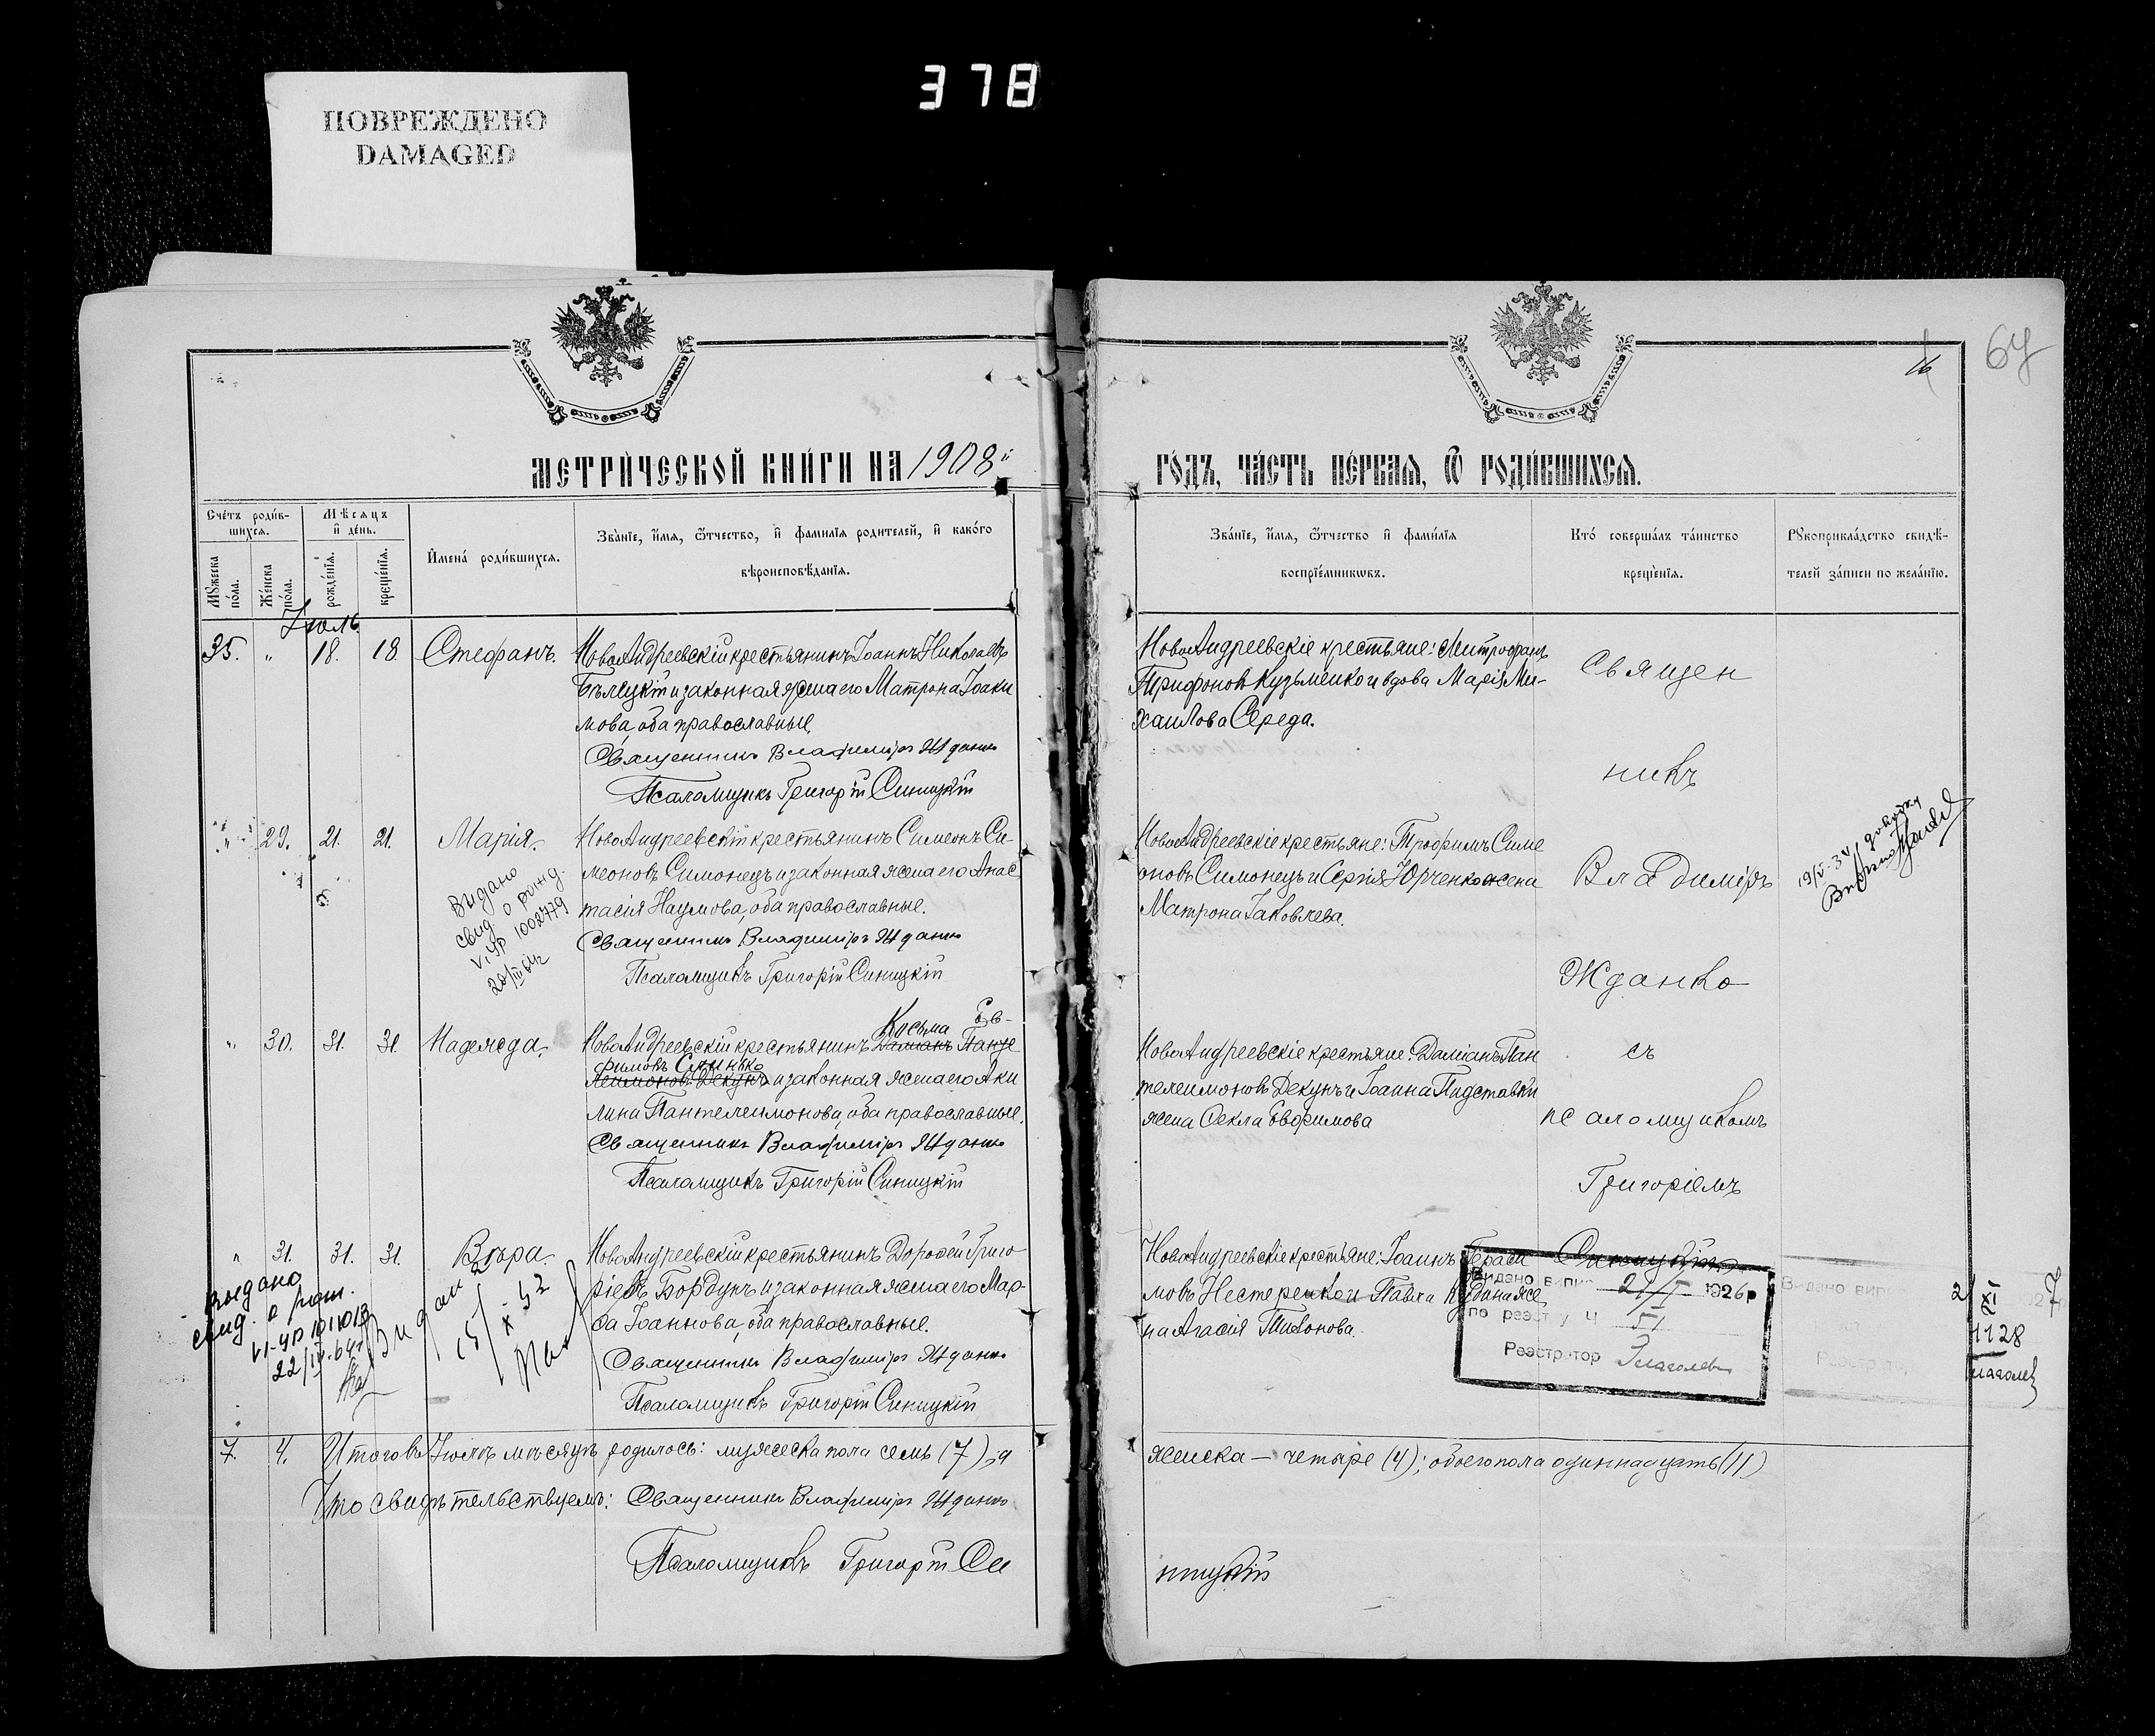 378
ПОВРЕЖДЕНО
DAMAGED
16
МЕТРИ́ЧЕСКОЙ КНИ́ГИ НА 1908й
ГО́ДЪ, ЧА́СТЬ ПЕ́РВАѦ, Ѿ РОДИ́ВШИХСѦ.
Сче́тъ роди́в-
шихсѧ.
Мѣ́сѧцъ
и҆ де́нь.
Мꙋ́жеска
по́ла.
Же́нска
по́ла.
рожде́нїѧ.
креще́нїѧ.
И҆мена̀ роди́вшихсѧ.
Зва́нїе, и҆́мѧ, ѻ҆́тчество, и҆ фами́лїѧ роди́телей, и҆ како́гѡ
вѣроисповѣ́данїѧ.
Зва́нїе, и҆́мѧ, ѻ҆́тчество и҆ фами́лїѧ
воспрїе́мникѡвъ.
Кто̀ соверша́лъ та́инство
креще́нїѧ.
Рꙋкоприкла́дство свидѣ́-
телей за́писи по жела́нїю.
Іюль
35. " 18. 18 Стефанъ.
НовоАндреевскій крестьянинъ Іоаннъ Николаевъ
Бѣлецкій и законная жена его Матрона Іоаки
мова, оба православные,
Священникъ Владиміръ Жданко
Псаломщикъ Григорій Синицкій
НовоАндреевскіе крестьяне: Митрофанъ
Трифоновъ Кузьменко и вдова Марія Ми-
хаилова Середа.
Священ
никъ
" 29. 21. 21. Марія.
НовоАндреевскій крестьянинъ Симеонъ Си-
меоновъ Симонецъ и законная жена его Анас
тасія Наумова, оба православные.
Священникъ Владиміръ Жданко
Псаломщикъ Григорій Синицкій
Видано
свид о рожд.
V.УР 1002779
НовоАндреевскіе крестьяне: Трофимъ Симе
оновъ Симонецъ и Сергія Юрченко жена
Матрона Іаковлева.
Владиміръ
Жданко
19/V-34
" 30. 31. 31. Надежда.
Косьма Ев-
НовоАндреевскій крестьянинъ Даміанъ Панте
фимовъ
леимоновъ Декунъ и законная жена его Аки
лина Пантелеимонова, оба православные.
Священникъ Владиміръ Жданко
Псаломщикъ Григорій Синицкій
НовоАндреевскіе крестьяне: Даміанъ Пан
телеимоновъ Декунъ и Іоанна Пидставки
жена Ѳекла Евфимова
съ
псаломщикомъ
Григоріемъ
" 31. 31. 31. Вѣра.
НовоАндреевскій крестьянинъ Дороѳей Григо
ріевъ Бордунъ и законная жена его Мар-
ѳа Іоаннова, оба православные.
Священникъ Владиміръ Жданко
Псаломщикъ Григорій Синицкій
выдано
свид. о рож.
VI-УР 1011013
22/IV-64г
Видан
15/X-32
НовоАндреевскіе крестьяне: Іоаннъ Гераси
мовъ Нестеренко и Павла Кудина же
на Агафія Тихонова.
Синицкимъ
Видано випис 21/I 1926р
по реєстру Ч 51
Реєстратор Глаголев
Видано вип
2/XI 1927
1128
Глаголев
7. 4. Итого въ Іюлѣ мѣсяцѣ родилось: мужеска пола семь (7), а
женска – четыре (4); обоего пола одиннадцать (11)
Что свидѣтельствуемъ: Священникъ Владиміръ Жданко
Псаломщикъ Григорій Си
ницкій